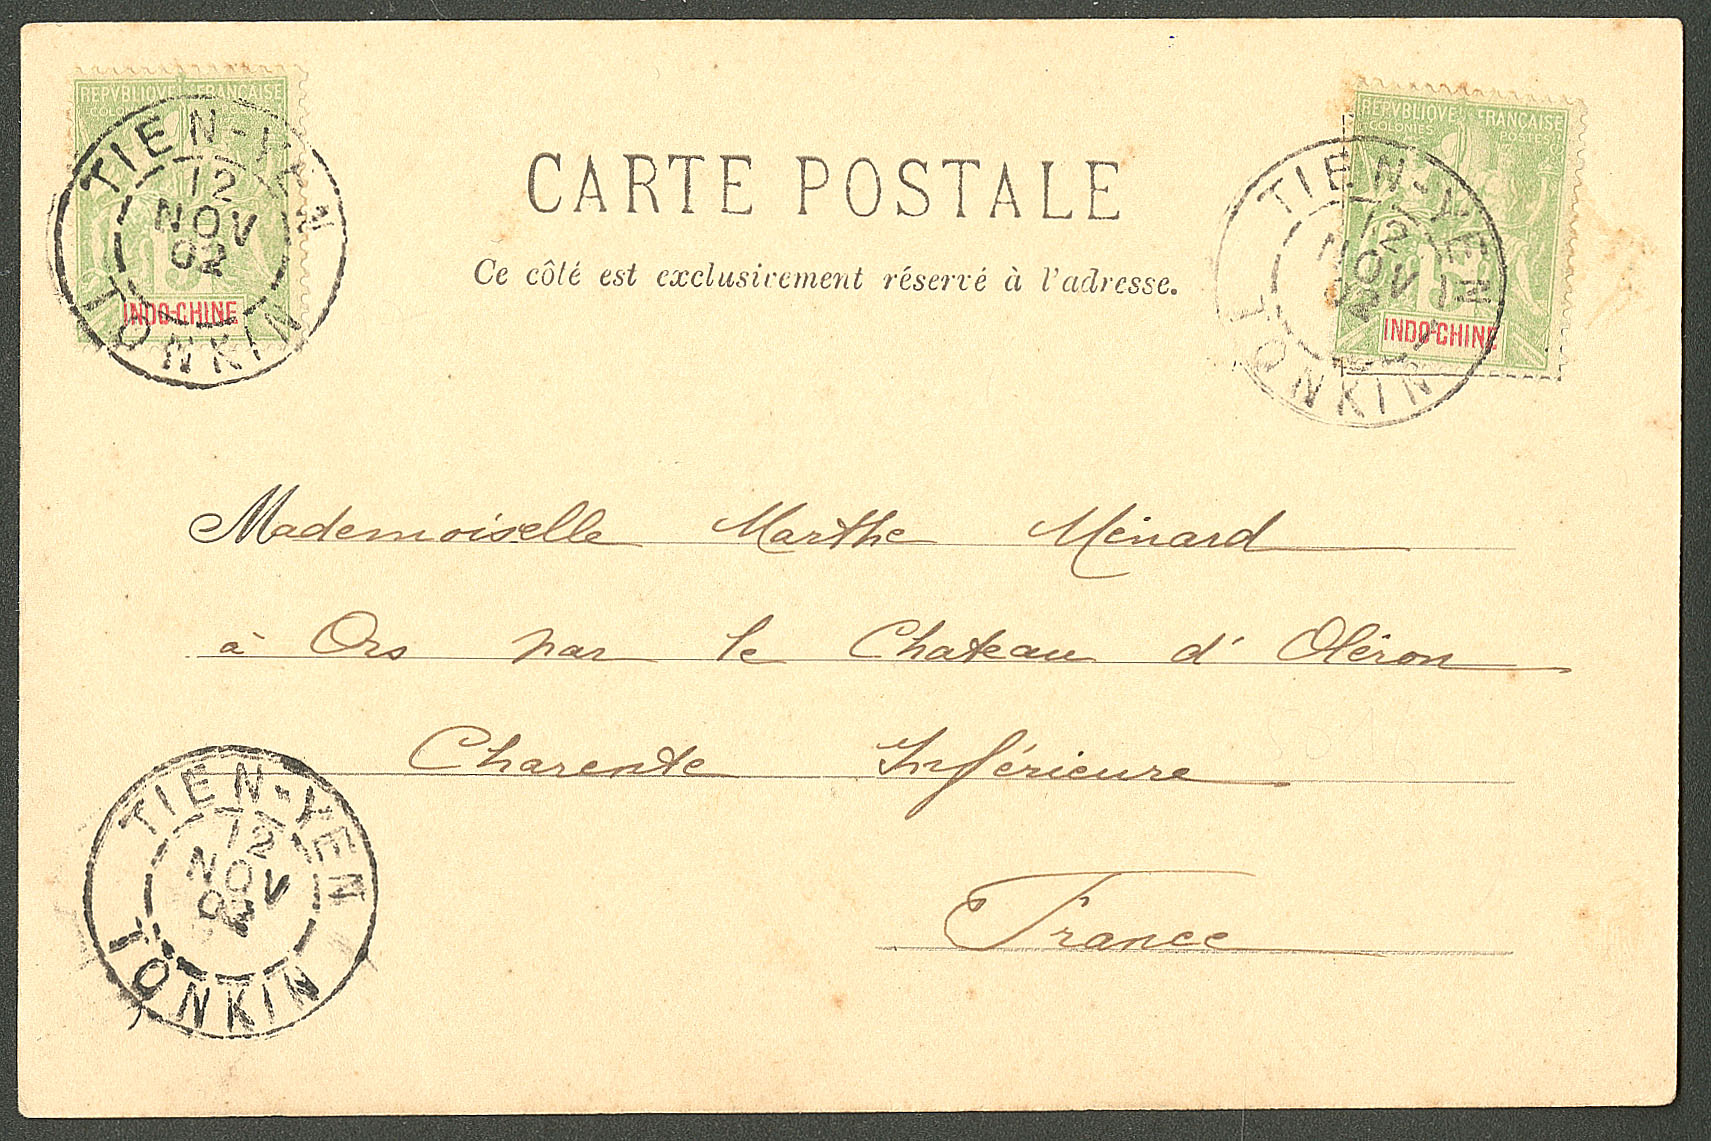 REPVBLIQVE FRANCAISE
COLONIES POSTES
INDO-CHINE
TIEN-YEN
12
NOV
02
TONKIN
REPVBLIQVE FRANCAISE
COLONIES POSTES
INDO-CHINE
TIEN-YEN
12
NOV
02
TONKIN
CARTE POSTALE
Ce côté est exclusivement réservé à l'adresse.
Mademoiselle Marthe Ménard
à Ors par le Chateau d'Oléron
Charente Inférieure
France
TIEN-YEN
12
NOV
02
TONKIN